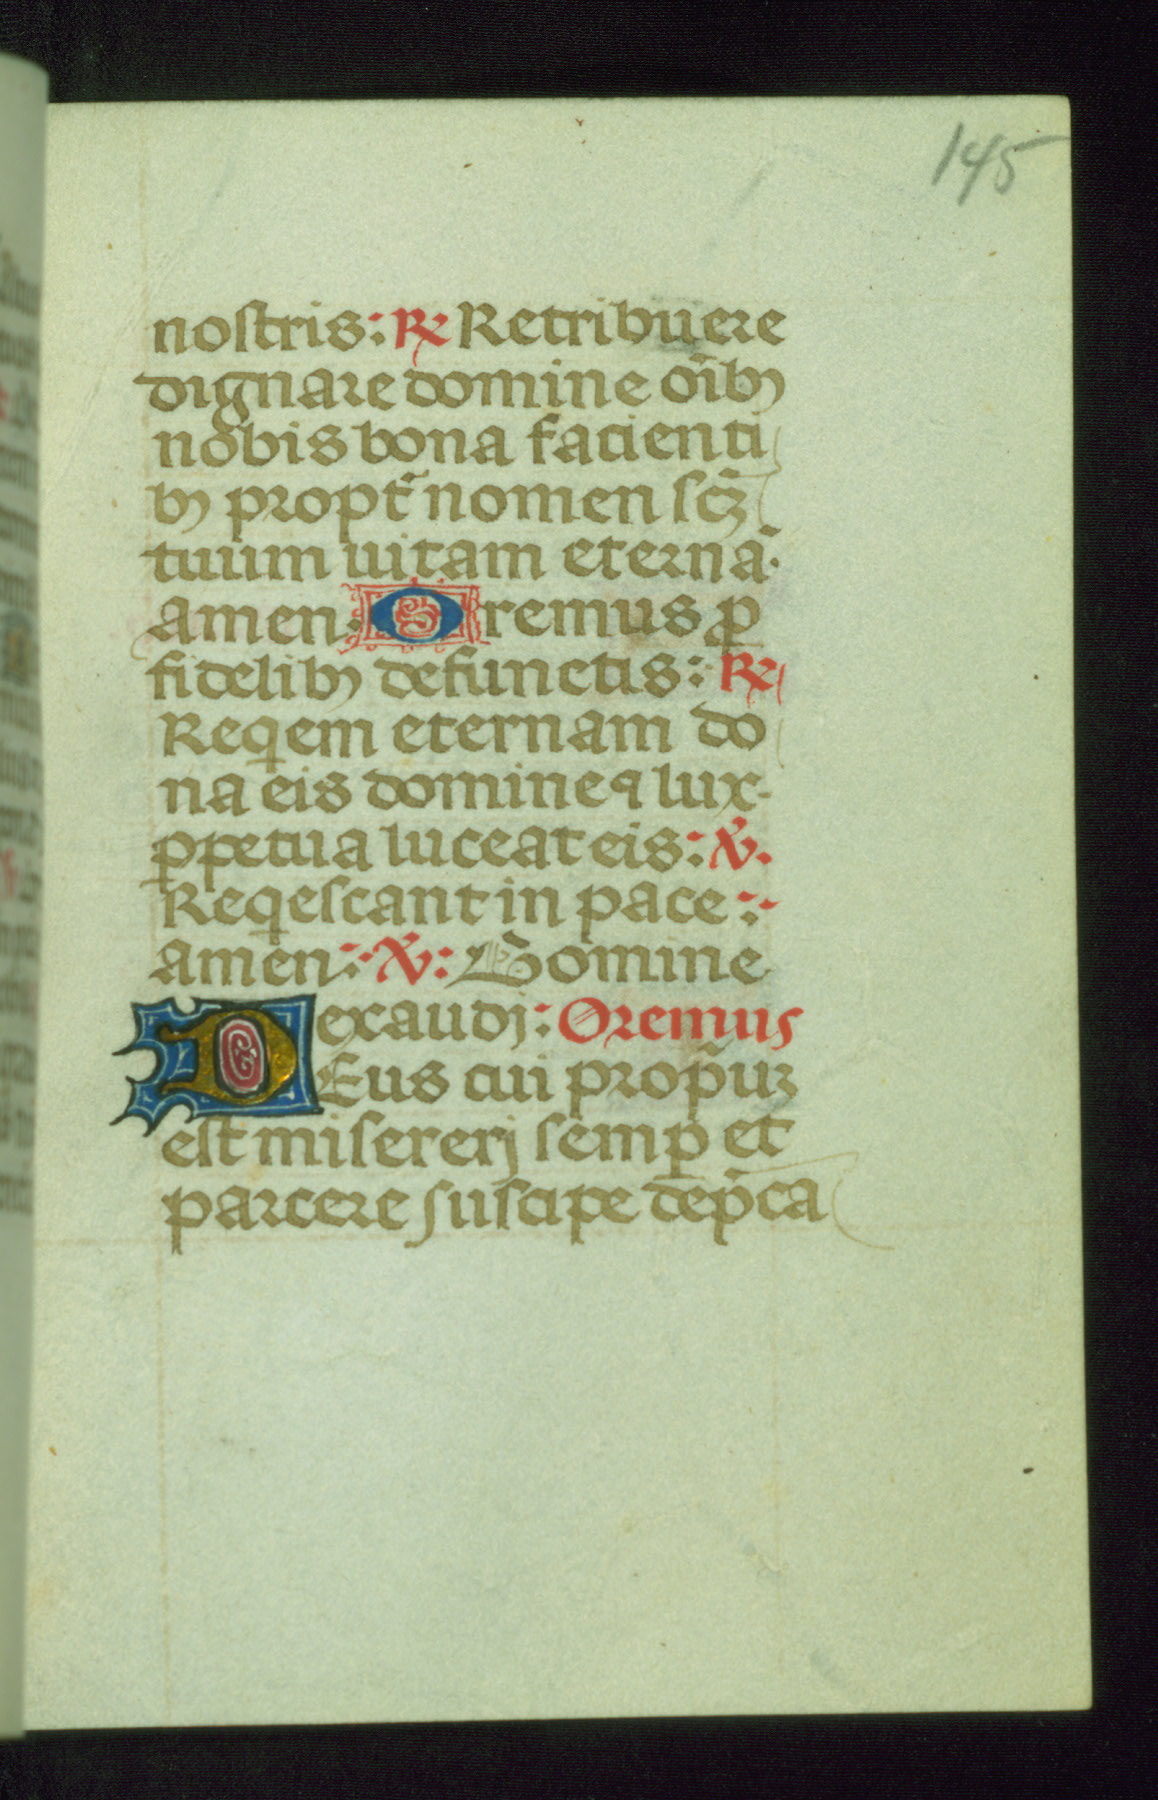 145
nostris: ℞ Retribuere
dignare domine oı̄bꝰ
nobis bona facienti
bꝰ propt̄ nomen sc̄ꝫ
tuum uitam eternā.
amen. Oremus ꝓ
fidelibꝰ defunctis: ℞
Reqͥem eternam do
na eis domine ꝯ lux
ꝑpetua luceat eis: ℣.
Reqͥescant in pace:
amen: ℣: Domine
exaudi: Oremus
DEus cui prop̄uꝫ
est misererj semꝑ et
parcere suscipe dep̄ca